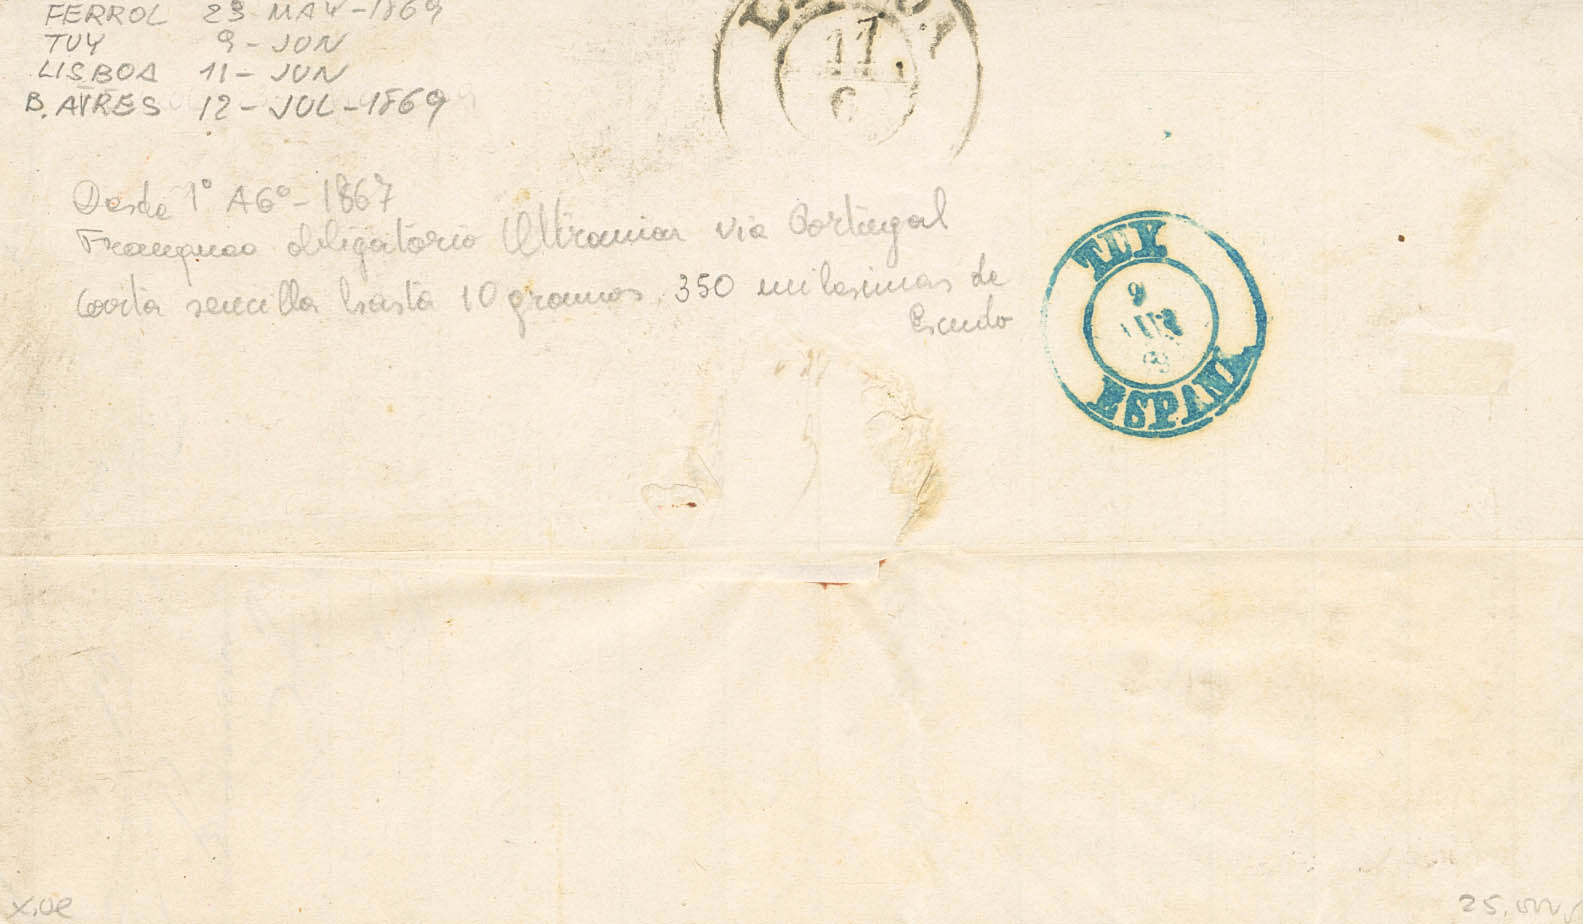 FERROL 23-MAY-1869
TUY 9-JUN
LISBOA 11-JUN
B. AIRES 12-JUL-1869
11
6
Desde 1° AG°-1867
Franqueo obligatorio Ultramar via Portugal
Carta sencilla hasta 10 gramos, 350 milesimas de
Escudo
TUY
9
JUN
69
ESPAÑA
25.